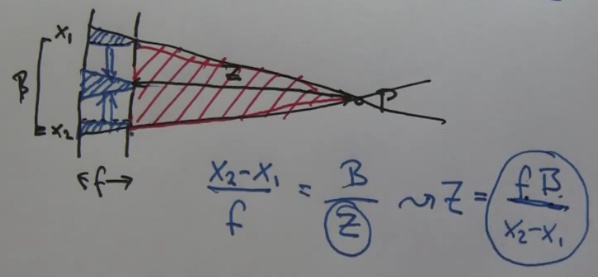 x₁
Z
B
P
x₂
←f→
x₂-x₁/f = B/Z ⇝ Z = f.B./x₂-x₁